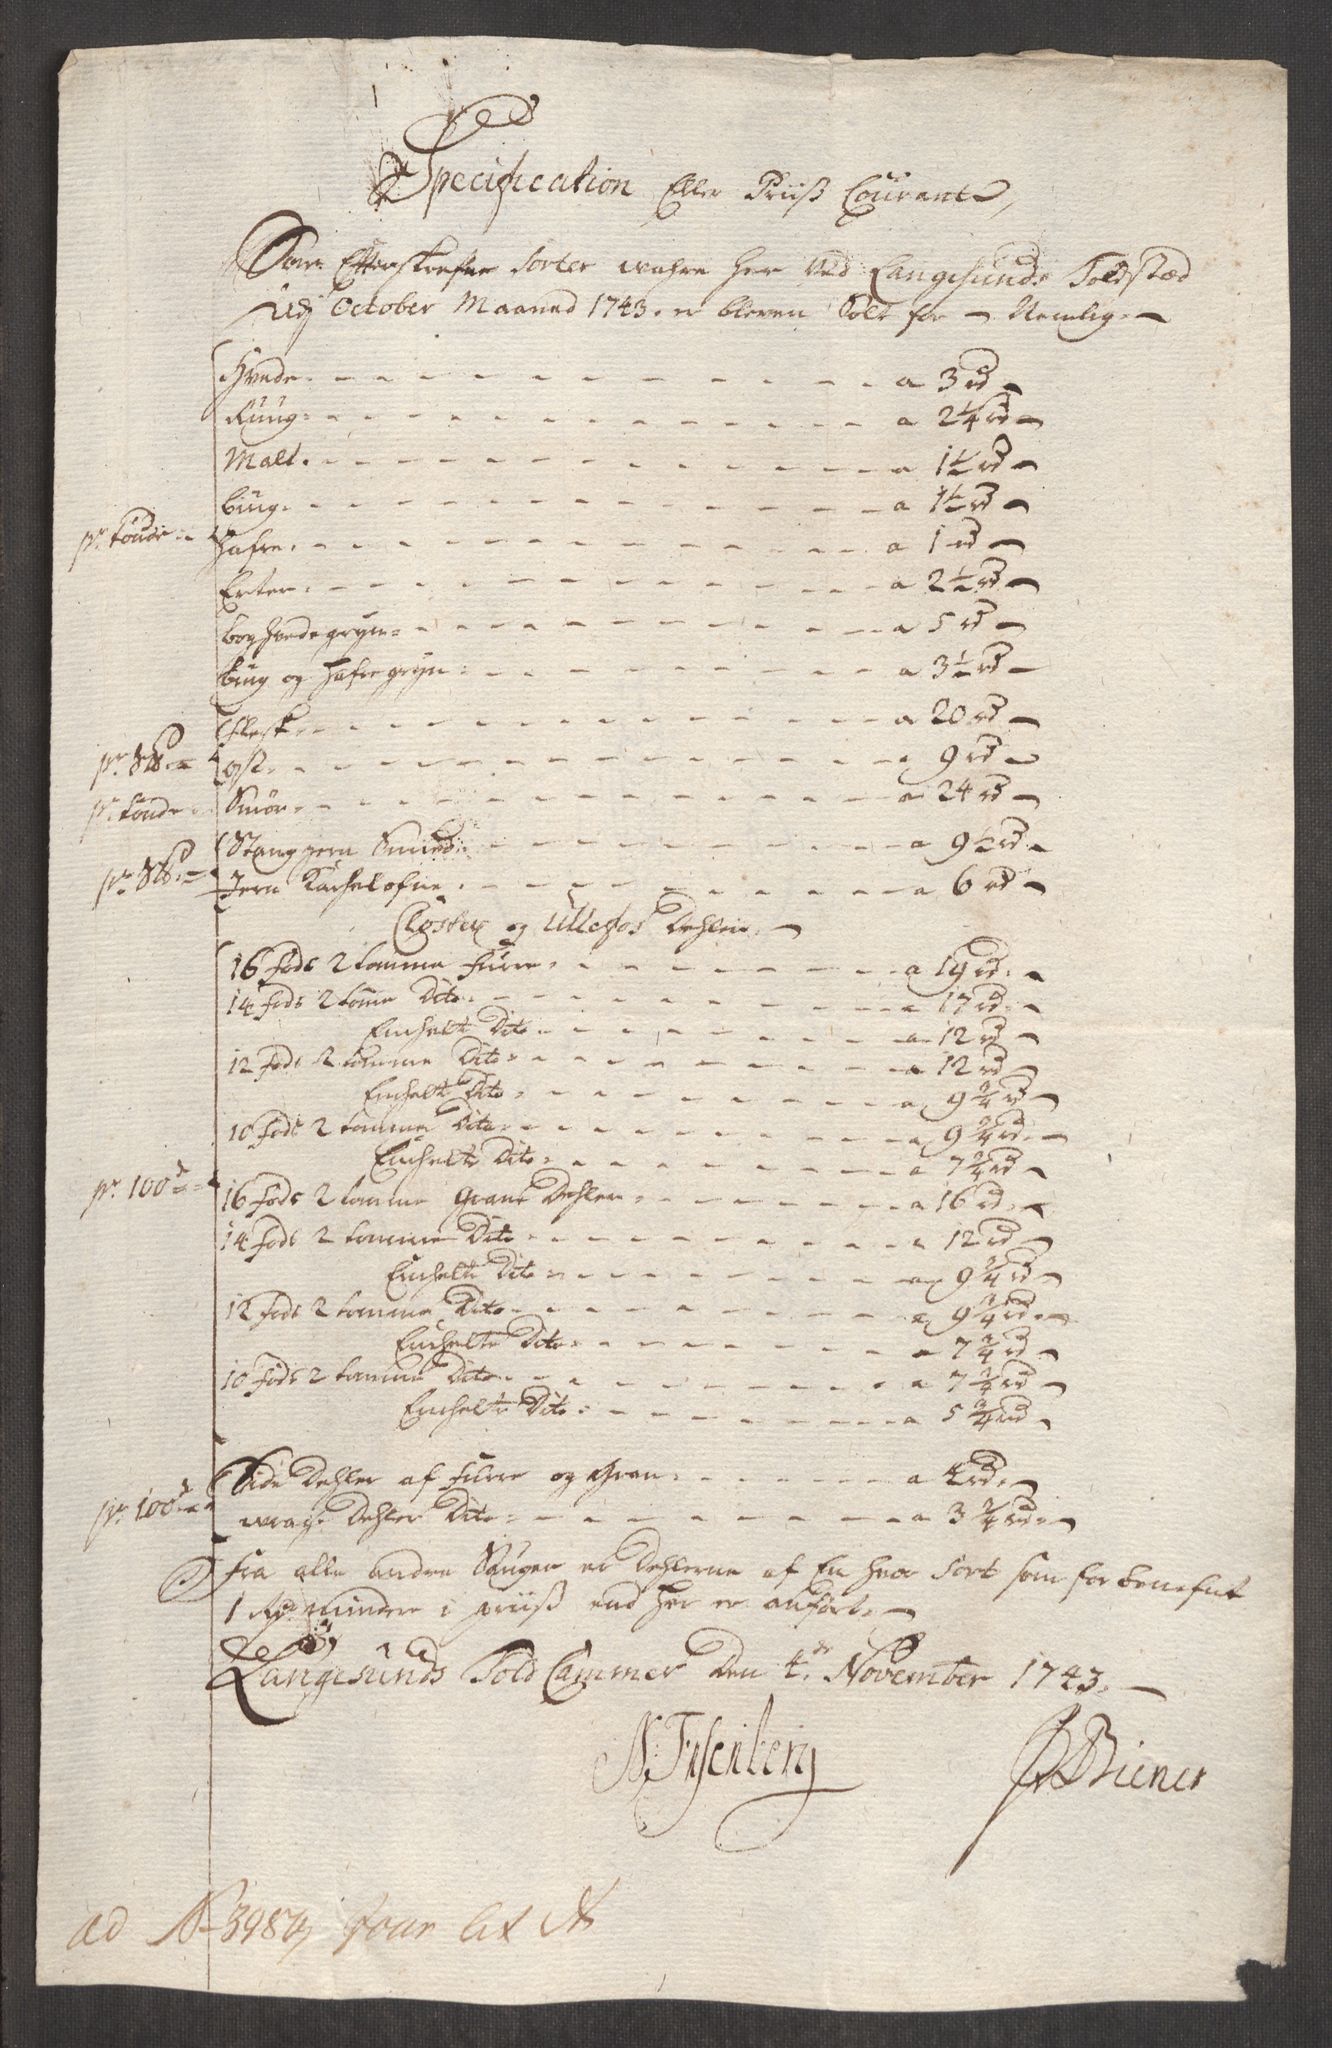 Specification Eller Priis Courant
Som Efterskrefne Sorter wahre her ved Langesunds Toldstæd
Udj October Maaned 1743. er bleven Solt for - Nemlig.
Hvede. a 3 rd
Rüug. a 2 1/4 rd
Malt. a 1 1/2 rd
biug. a 1 1/2 rd
pr. tönde hafre. a 1 rd
Erter. a 2 1/2 rd
boghvede gryn. a 5 rd
biug og hafre gryn. a 3 1/2 rd
flesk. a 20 rd
pr. S℔. ost. a 9 rd
pr. tönde Smör. a 24 rd
Stang jern Smied. a 9 1/2 rd
pr. S℔. Jern Kachelofne. a 6 rd
Closter og Ullefos Dehler.
16 fods 2 tomme furre. a 19 rd
14 fods 2 tome Dito. a 17 rd
Enchelt Dito. a 12 rd
12 fods 2 tomme Dito. a 12 rd
Enchelt Dito. a 9 3/4 rd
10 fods 2 tomme Dito. a 9 3/4 rd
Enchelte Dito. a 7 3/4 rd
pr. 100de 16 fods 2 tomme Grane Dehler. a 16 rd
14 fods 2 tomme Dito. a 12 rd
Enchelte Dito. a 9 3/4 rd
12 fods 2 tomme Dito. a 9 3/4 rd
Enchelte Dito. a 7 3/4 rd
10 fods 2 tomme Dito. a 7 3/4 rd
Enchelte Dito. a 5 3/4 rd
Side Dehler af furre og Gran. a 4 rd
pr. 100de wrag Dehler Dito. a 3 3/4 rd
Fra alle andre Sauger er Dehlerne af En hver Sort som forbenefnt
1 rdr minder i priis end her er anfört.
Langesunds Told Cammer Den 4de November 1743.
Biener
ad No 3987